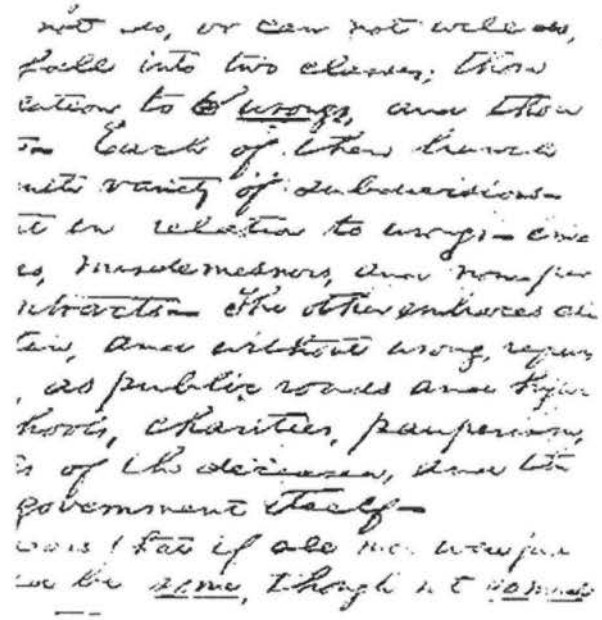 not do, or can not well do,
fall into two classes; those
cation to wrongs, and those
Each of these branch
nite variety of subdivisions—
t in relation to wrongs— crim
es, misdemeanors, and non-per
ntracts— The other embraces all
ture, and without wrong, requi
, as public roads and high
hools, charities, pauperism,
of the deceased, and the
government itself—
that if all men were just
be some, though not so much